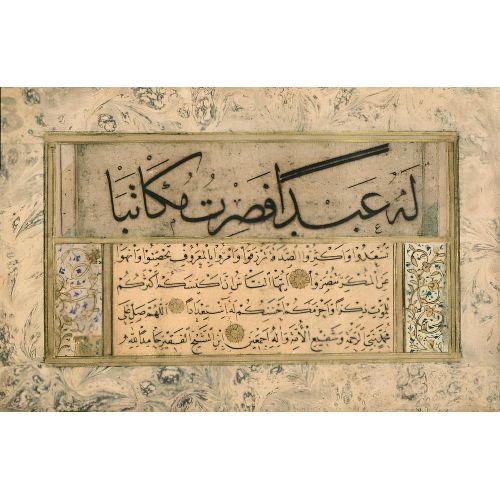 لَهُ عَبدًا فَصِرتُ مُكَاتَبًا
تسعدوا واكثروا الصدقة ترزقوا وامروا بالمعروف تحصنوا وانهوا
عن المنكر تنصروا ايها الناس ان اكيسكم اكثركم
للموت ذكرا واحزمكم احسنكم له استعدادا اللهم صل على
محمد نبي الرحمة وشفيع الامة وآله اجمعين ابن الشيخ حامدا لله